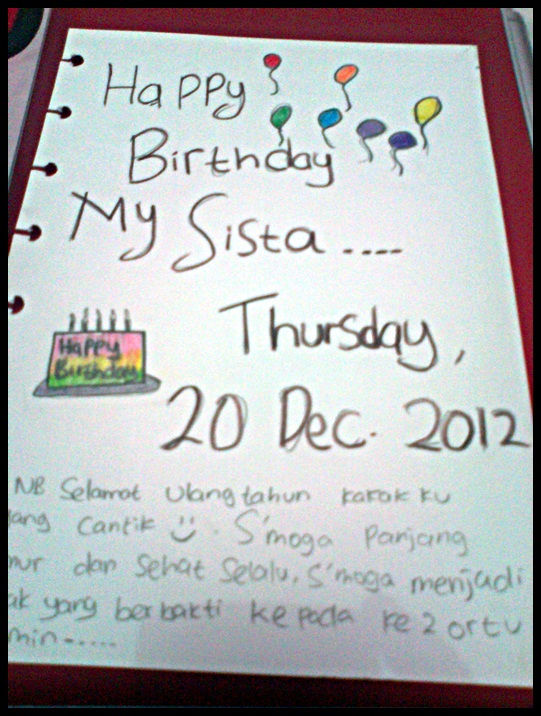 Happy
Birthday
My Sista ....
Thursday,
20 Dec. 2012
Happy
Birthday
NB Selamat Ulang tahun kakak ku
ang Cantik ☺. S'moga Panjang
mur dan Sehat Selalu, S'moga menjadi
ak yang berbakti kepada ke 2 ortu
min-.....